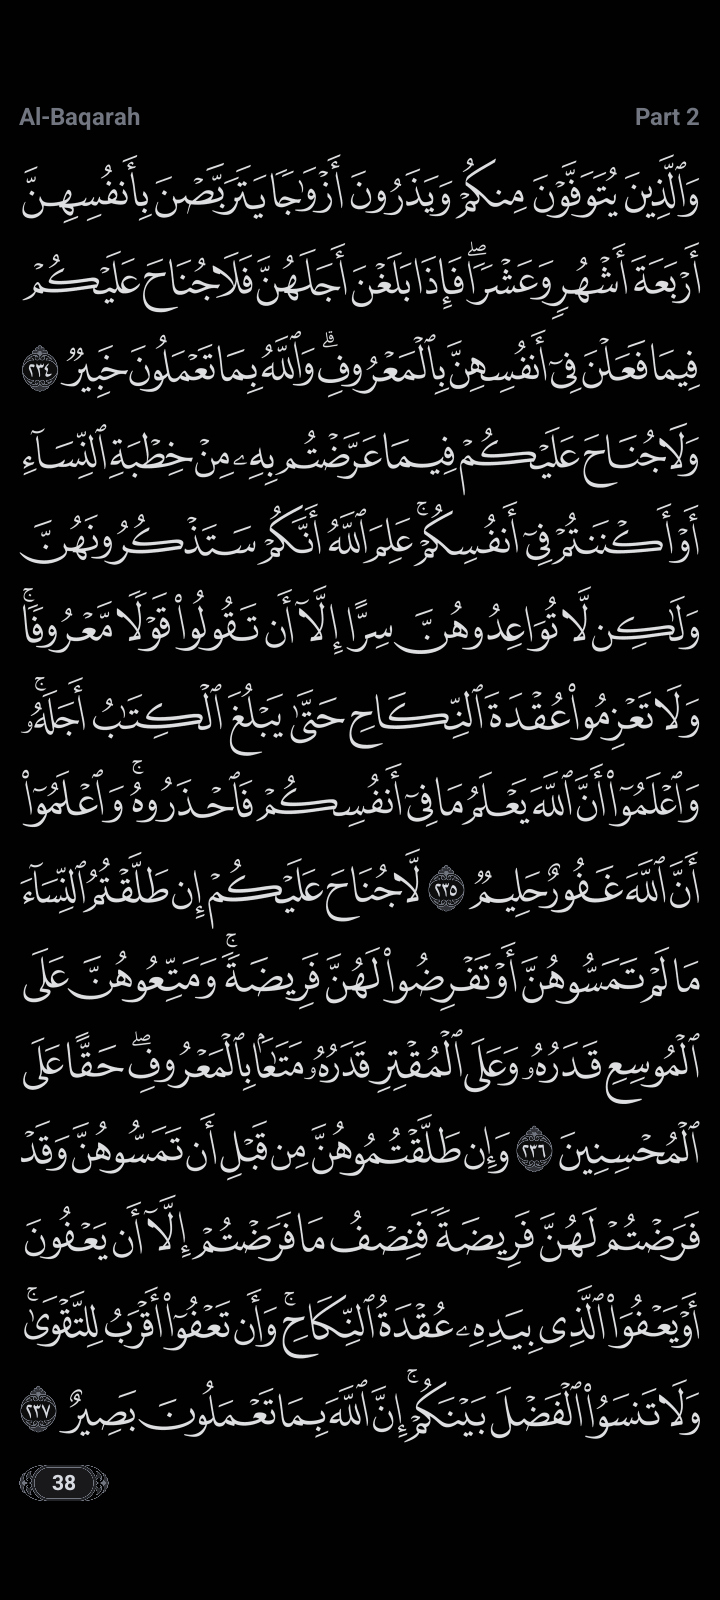 Al-Baqarah Part 2
وَٱلَّذِينَ يُتَوَفَّوْنَ مِنكُمْ وَيَذَرُونَ أَزْوَٰجًا يَتَرَبَّصْنَ بِأَنفُسِهِنَّ
أَرْبَعَةَ أَشْهُرٍ وَعَشْرًا ۖ فَإِذَا بَلَغْنَ أَجَلَهُنَّ فَلَا جُنَاحَ عَلَيْكُمْ
فِيمَا فَعَلْنَ فِىٓ أَنفُسِهِنَّ بِٱلْمَعْرُوفِ ۗ وَٱللَّهُ بِمَا تَعْمَلُونَ خَبِيرٌ ٢٣٤
وَلَا جُنَاحَ عَلَيْكُمْ فِيمَا عَرَّضْتُم بِهِۦ مِنْ خِطْبَةِ ٱلنِّسَآءِ
أَوْ أَكْنَنتُمْ فِىٓ أَنفُسِكُمْ ۚ عَلِمَ ٱللَّهُ أَنَّكُمْ سَتَذْكُرُونَهُنَّ
وَلَٰكِن لَّا تُوَاعِدُوهُنَّ سِرًّا إِلَّآ أَن تَقُولُوا۟ قَوْلًا مَّعْرُوفًا ۚ
وَلَا تَعْزِمُوا۟ عُقْدَةَ ٱلنِّكَاحِ حَتَّىٰ يَبْلُغَ ٱلْكِتَٰبُ أَجَلَهُۥ ۚ
وَٱعْلَمُوٓا۟ أَنَّ ٱللَّهَ يَعْلَمُ مَا فِىٓ أَنفُسِكُمْ فَٱحْذَرُوهُ ۚ وَٱعْلَمُوٓا۟
أَنَّ ٱللَّهَ غَفُورٌ حَلِيمٌ ٢٣٥ لَّا جُنَاحَ عَلَيْكُمْ إِن طَلَّقْتُمُ ٱلنِّسَآءَ
مَا لَمْ تَمَسُّوهُنَّ أَوْ تَفْرِضُوا۟ لَهُنَّ فَرِيضَةً ۚ وَمَتِّعُوهُنَّ عَلَى
ٱلْمُوسِعِ قَدَرُهُۥ وَعَلَى ٱلْمُقْتِرِ قَدَرُهُۥ مَتَٰعًۢا بِٱلْمَعْرُوفِ ۖ حَقًّا عَلَى
ٱلْمُحْسِنِينَ ٢٣٦ وَإِن طَلَّقْتُمُوهُنَّ مِن قَبْلِ أَن تَمَسُّوهُنَّ وَقَدْ
فَرَضْتُمْ لَهُنَّ فَرِيضَةً فَنِصْفُ مَا فَرَضْتُمْ إِلَّآ أَن يَعْفُونَ
أَوْ يَعْفُوَا۟ ٱلَّذِى بِيَدِهِۦ عُقْدَةُ ٱلنِّكَاحِ ۚ وَأَن تَعْفُوٓا۟ أَقْرَبُ لِلتَّقْوَىٰ ۚ
وَلَا تَنسَوُا۟ ٱلْفَضْلَ بَيْنَكُمْ ۚ إِنَّ ٱللَّهَ بِمَا تَعْمَلُونَ بَصِيرٌ ٢٣٧
38